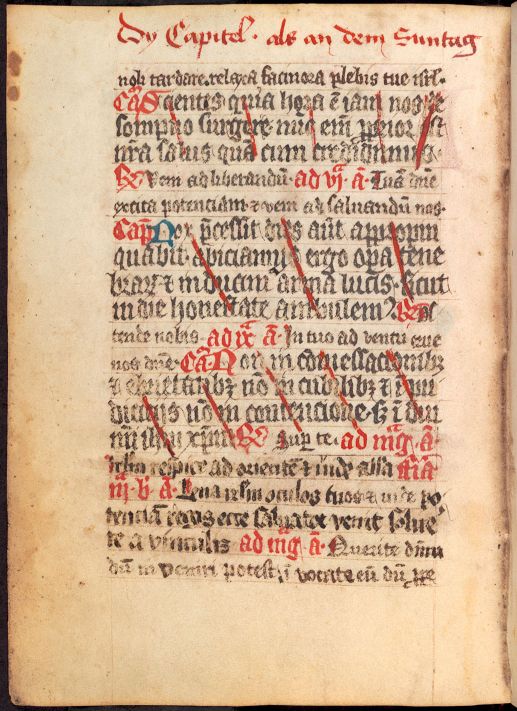 Dy Capitel · als an dem Suntag
noli tardare relaxa facinora plebis tue isrl·
Ca Scientes quia hora ē iam nos de
sompno surgere nūc eīm ꝓpior est
nr̄a salus quā cum credidimus·
℟ Veni ad liberandū· ad vi ā· Tuā dn̄e
excita potenciam ⁊ veni ad saluandū nos·
Cap Nox p̄cessit dies aūt appropin
quabit· abiciamus ergo oꝑa tene
brarū ⁊ induam arma lucis· sicut
in die honeste ambulem⁹ ℟ Os
tende nobis· ad ix ā· In tuo ad ventu erue
nos dn̄e· Ca Non in comessacionibꝫ
⁊ ebrietatibꝫ nō in cubilibꝫ ⁊ īpu
diciciis nō in contencione· sꝫ īdui
mī ihm xp̄m ℟ Sup te· ad mag̅ ā·
irlm respice ad orientē ⁊ uide alla fer̄ia
iii· b· ā· Leua irlm oculos tuos ⁊ uide po
tenciā regis ecce saluator venit solue
te a vinculis ad mag̅ ā· Querite dn̄m
dū inveniri potest īuocate eū dū ꝓpe